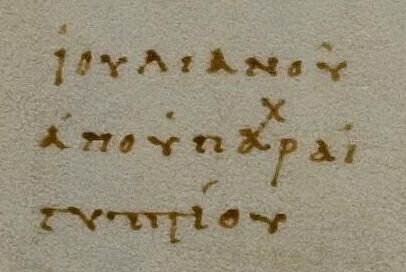 ἰουλιανοῦ
ἀποὑπαρχ αἰ
γυπτίου